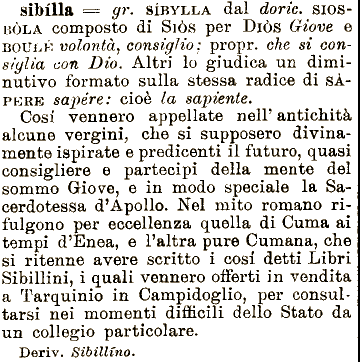 sibílla = gr. SÍBYLLA dal doric. SIOS-
BÒLA composto di SIÒS per DIÒS Giove e
BOULÉ volontà, consiglio: propr. che si con-
siglia con Dio. Altri lo giudica un dimi-
nutivo formato sulla stessa radice di SÀ-
PERE sapére: cioè la sapiente.
Cosí vennero appellate nell'antichità
alcune vergini, che si supposero divina-
mente ispirate e predicenti il futuro, quasi
consigliere e partecipi della mente del
sommo Giove, e in modo speciale la Sa-
cerdotessa d'Apollo. Nel mito romano ri-
fulgono per eccellenza quella di Cuma ai
tempi d'Enea, e l'altra pure Cumana, che
si ritenne avere scritto i cosí detti Libri
Sibillini, i quali vennero offerti in vendita
a Tarquinio in Campidoglio, per consul-
tarsi nei momenti difficili dello Stato da
un collegio particolare.
Deriv. Sibillíno.